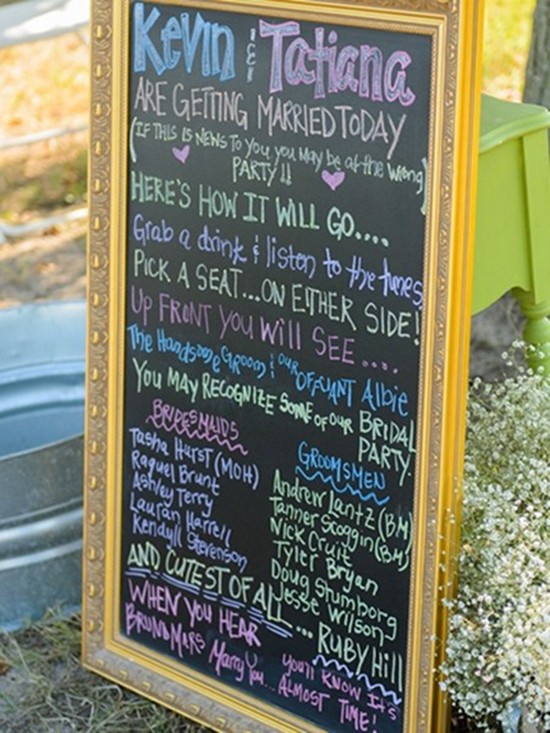 Kevin & Tatiana
ARE GETTING MARRIED TODAY
(IF THIS IS NEWS TO YOU, YOU MAY BE at the wrong
PARTY!!)
HERE'S HOW IT WILL GO....
Grab a drink & listen to the tunes
PICK A SEAT...ON EITHER SIDE!
UP FRONT YOU WILL SEE....
The Handsome GROOM & OUR OFFICIANT Albie
YOU MAY RECOGNIZE SOME OF OUR BRIDAL
PARTY.
BRIDESMAIDS
Tasha Hurst (MOH)
Raquel Brunt
Ashley Terry
Lauran Harrell
Kendyll Stevenson
GROOMSMEN
Andrew Lantz (BM)
Tanner Scoggin (BM)
Nick Cruit
Tyler Bryan
Doug Stumborg
Jesse Wilson
AND CUTEST OF ALL... RUBY HILL
WHEN YOU HEAR
BRUNO MARS Marry You... You'll KNOW IT'S
ALMOST TIME!